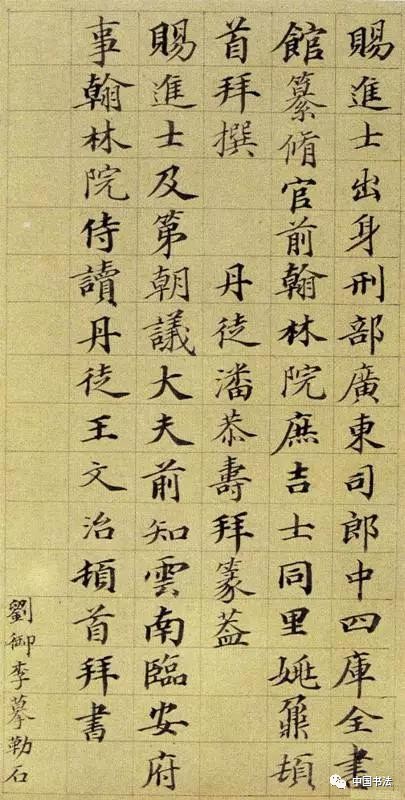 賜進士出身刑部廣東司郎中四庫全書
館纂脩官前翰林院庶吉士同里姚鼐頓
首拜撰　丹徒潘恭壽拜篆蓋
賜進士及第朝議大夫前知雲南臨安府
事翰林院侍讀丹徒王文治頓首拜書
劉御李摹勒石
中国书法